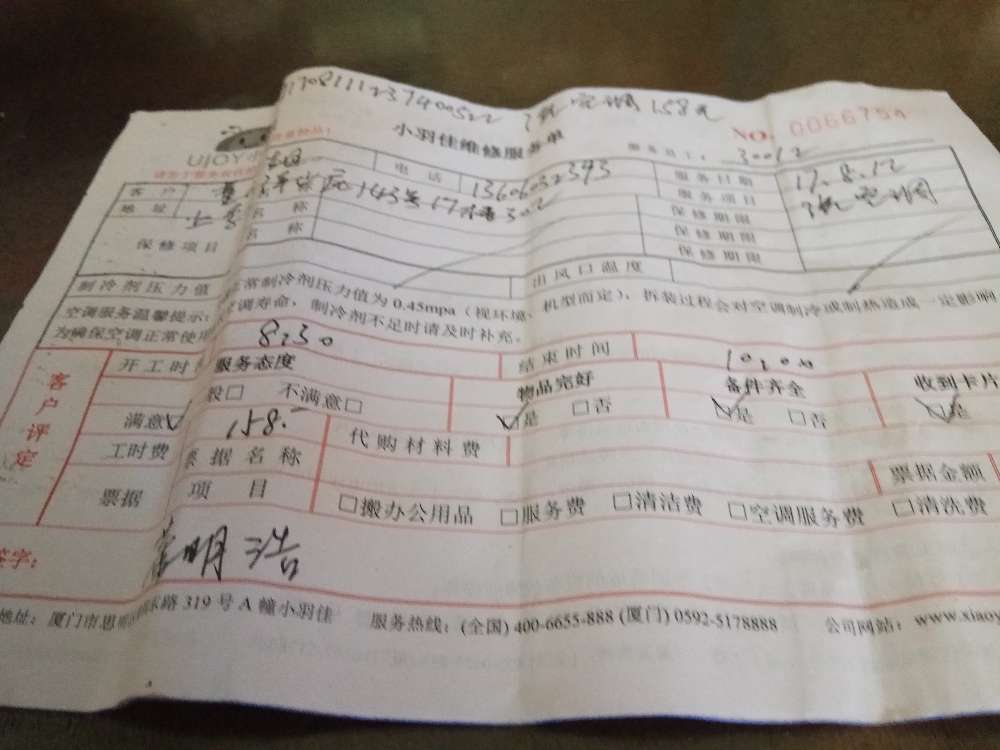 158元
小羽佳维修服务单
NO. 0066754
UJOY小
服务员工: 30012
客户
电话 13606032393
服务日期 17.8.12
地址 143号17 302
服务项目 洗空调
保修项目
名称
保修期限
名称
保修期限
保修期限
制冷剂压力值
出风口温度
空调服务温馨提示: 正常制冷剂压力值为0.45mpa (视环境、机型而定), 拆装过程会对空调制冷或制热造成一定影响
为确保空调正常使用 空调寿命, 制冷剂不足时请及时补充。
客户评定
开工时 8:30
结束时间 10:00
服务态度
物品完好
备件齐全
收到卡片
满意☑ 般□ 不满意□
☑是 □否
☑是 □否
☑是
工时费 158.-
代购材料费
票据
票据名称
票据金额
项目
□搬办公用品 □服务费 □清洁费 □空调服务费 □清洗费
签字: 明浩
地址: 厦门市思明 东路319号A幢小羽佳 服务热线: (全国) 400-6655-888 (厦门) 0592-5178888 公司网站: www.xiaoy